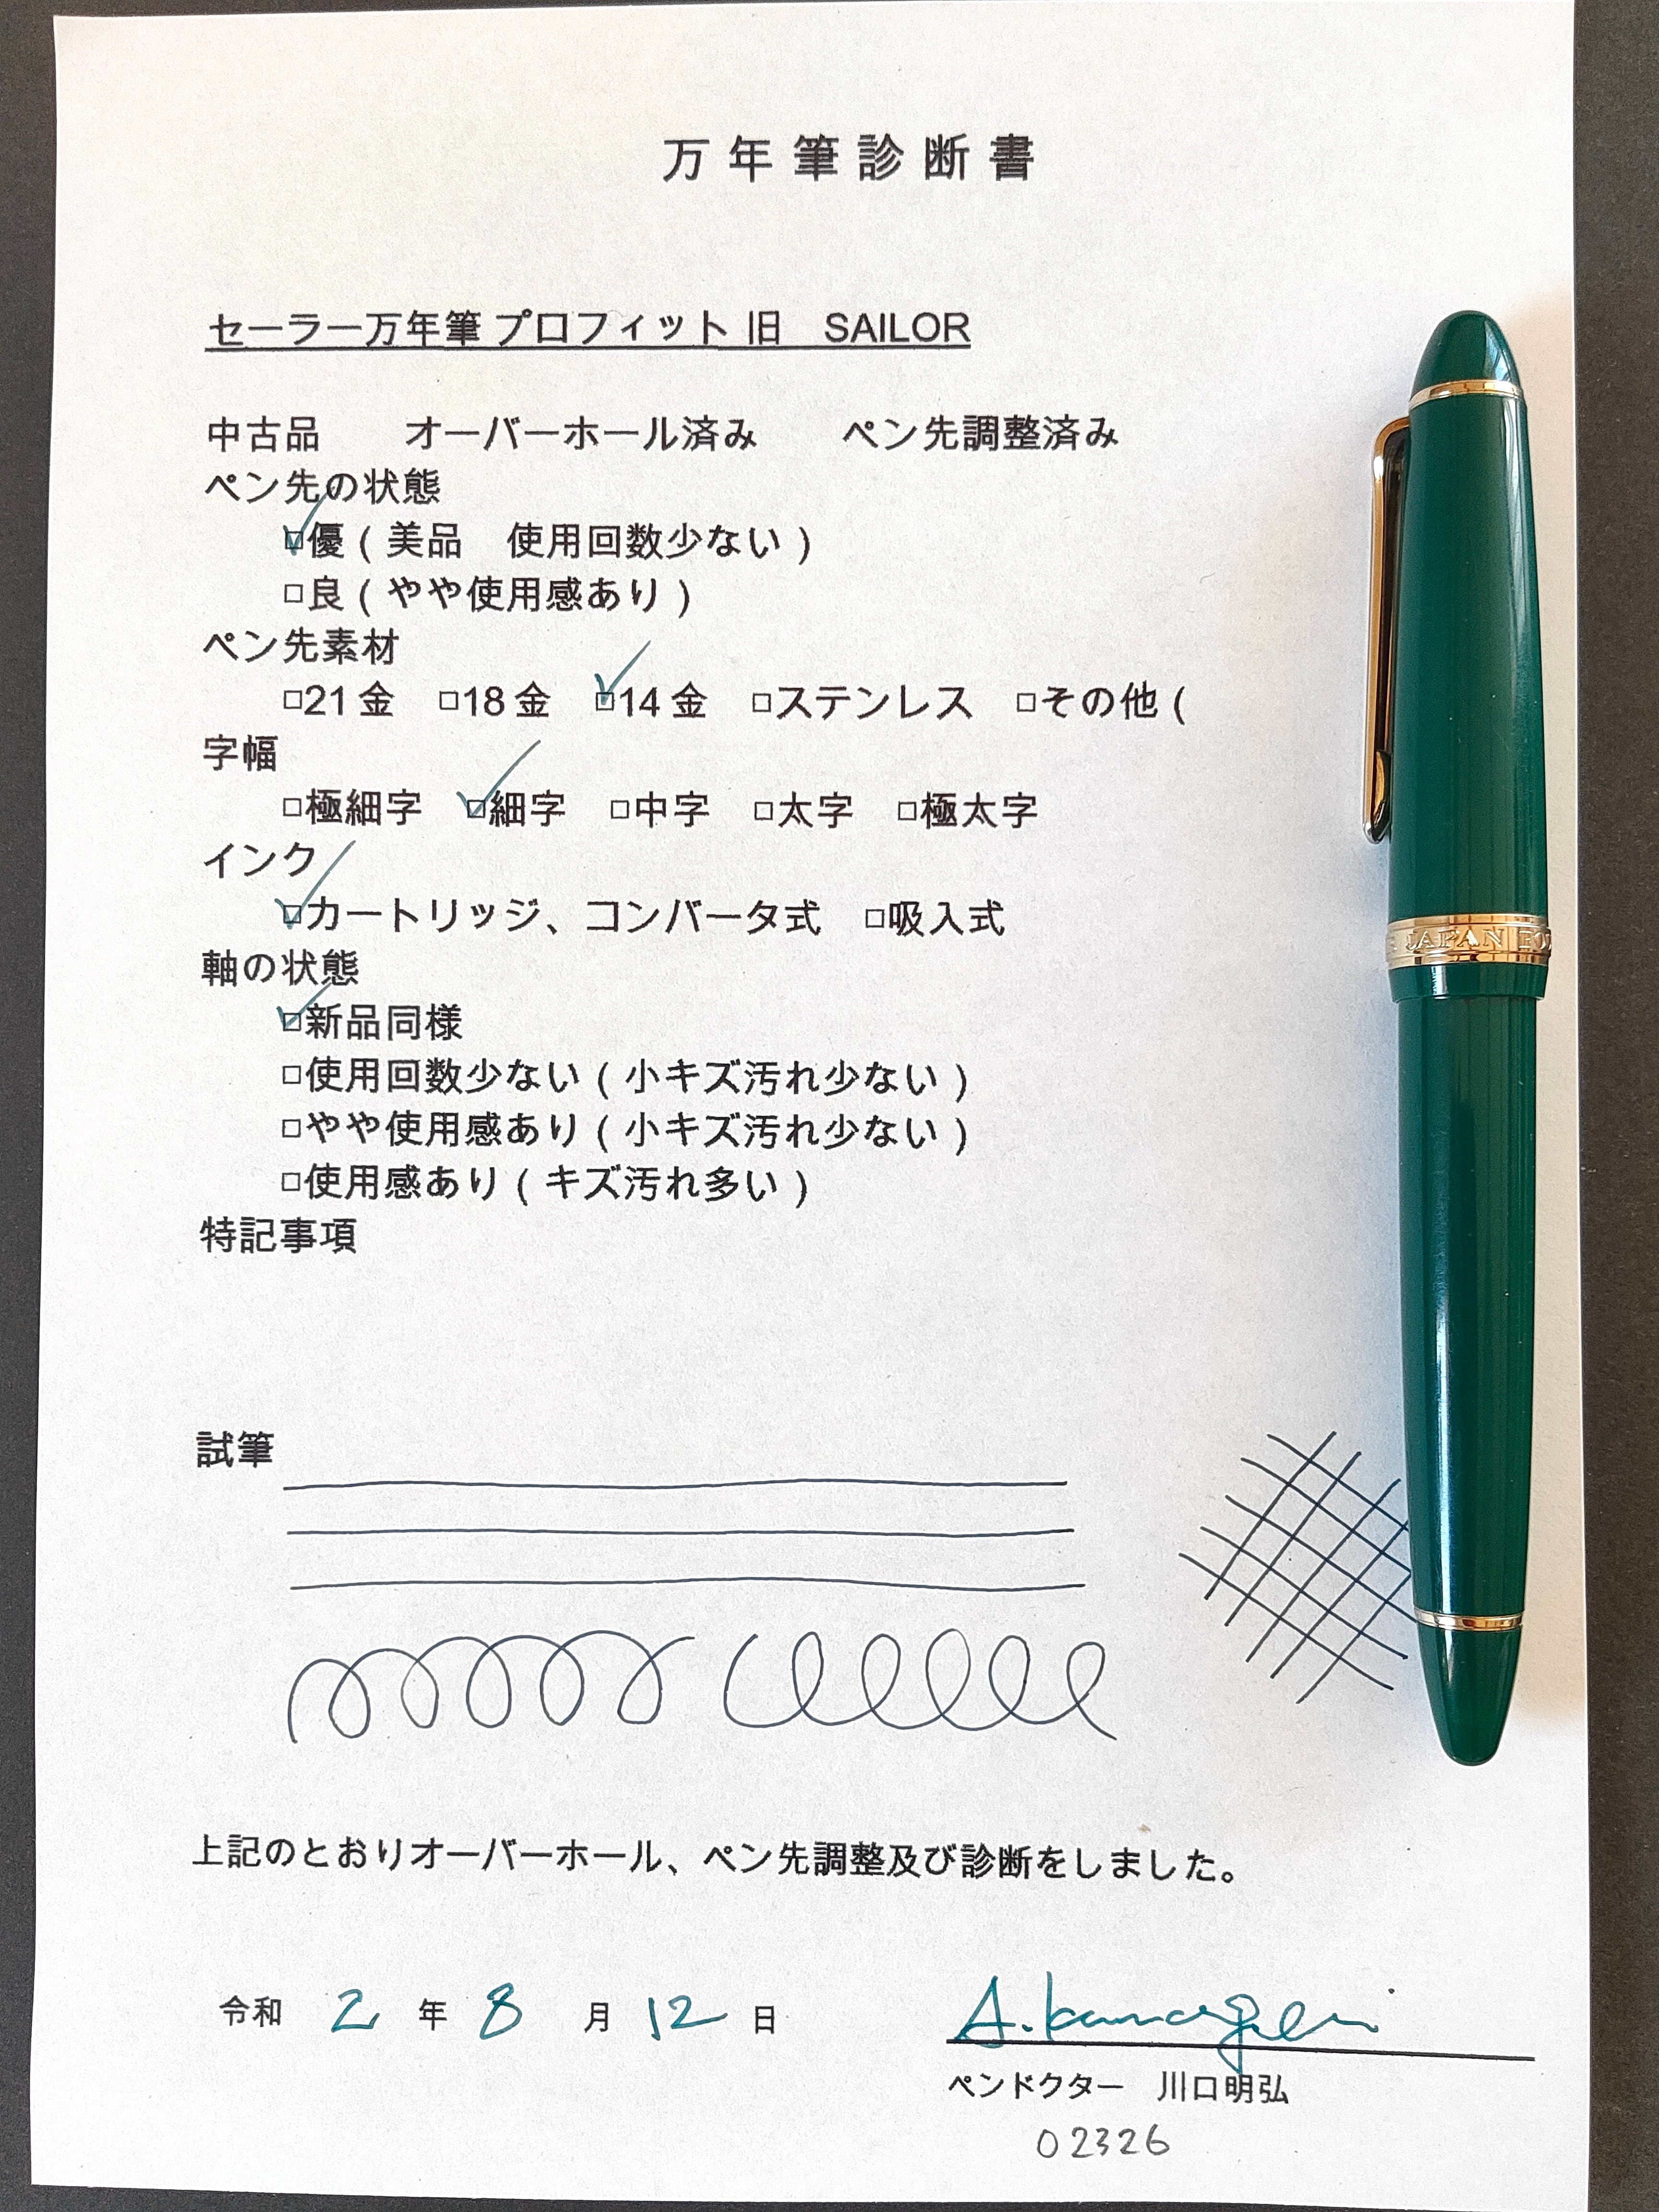 万年筆診断書
セーラー万年筆 プロフィット 旧　SAILOR
中古品　　オーバーホール済み　　ペン先調整済み
ペン先の状態
☑優（美品　使用回数少ない）
□良（やや使用感あり）
ペン先素材
□21金　□18金　☑14金　□ステンレス　□その他（
字幅
□極細字　☑細字　□中字　□太字　□極太字
インク
☑カートリッジ、コンバータ式　□吸入式
軸の状態
☑新品同様
□使用回数少ない（小キズ汚れ少ない）
□やや使用感あり（小キズ汚れ少ない）
□使用感あり（キズ汚れ多い）
特記事項
JAPAN FOU
試筆
上記のとおりオーバーホール、ペン先調整及び診断をしました。
令和 2 年 8 月 12 日
A. Kawaguchi
ペンドクター　川口明弘
02326